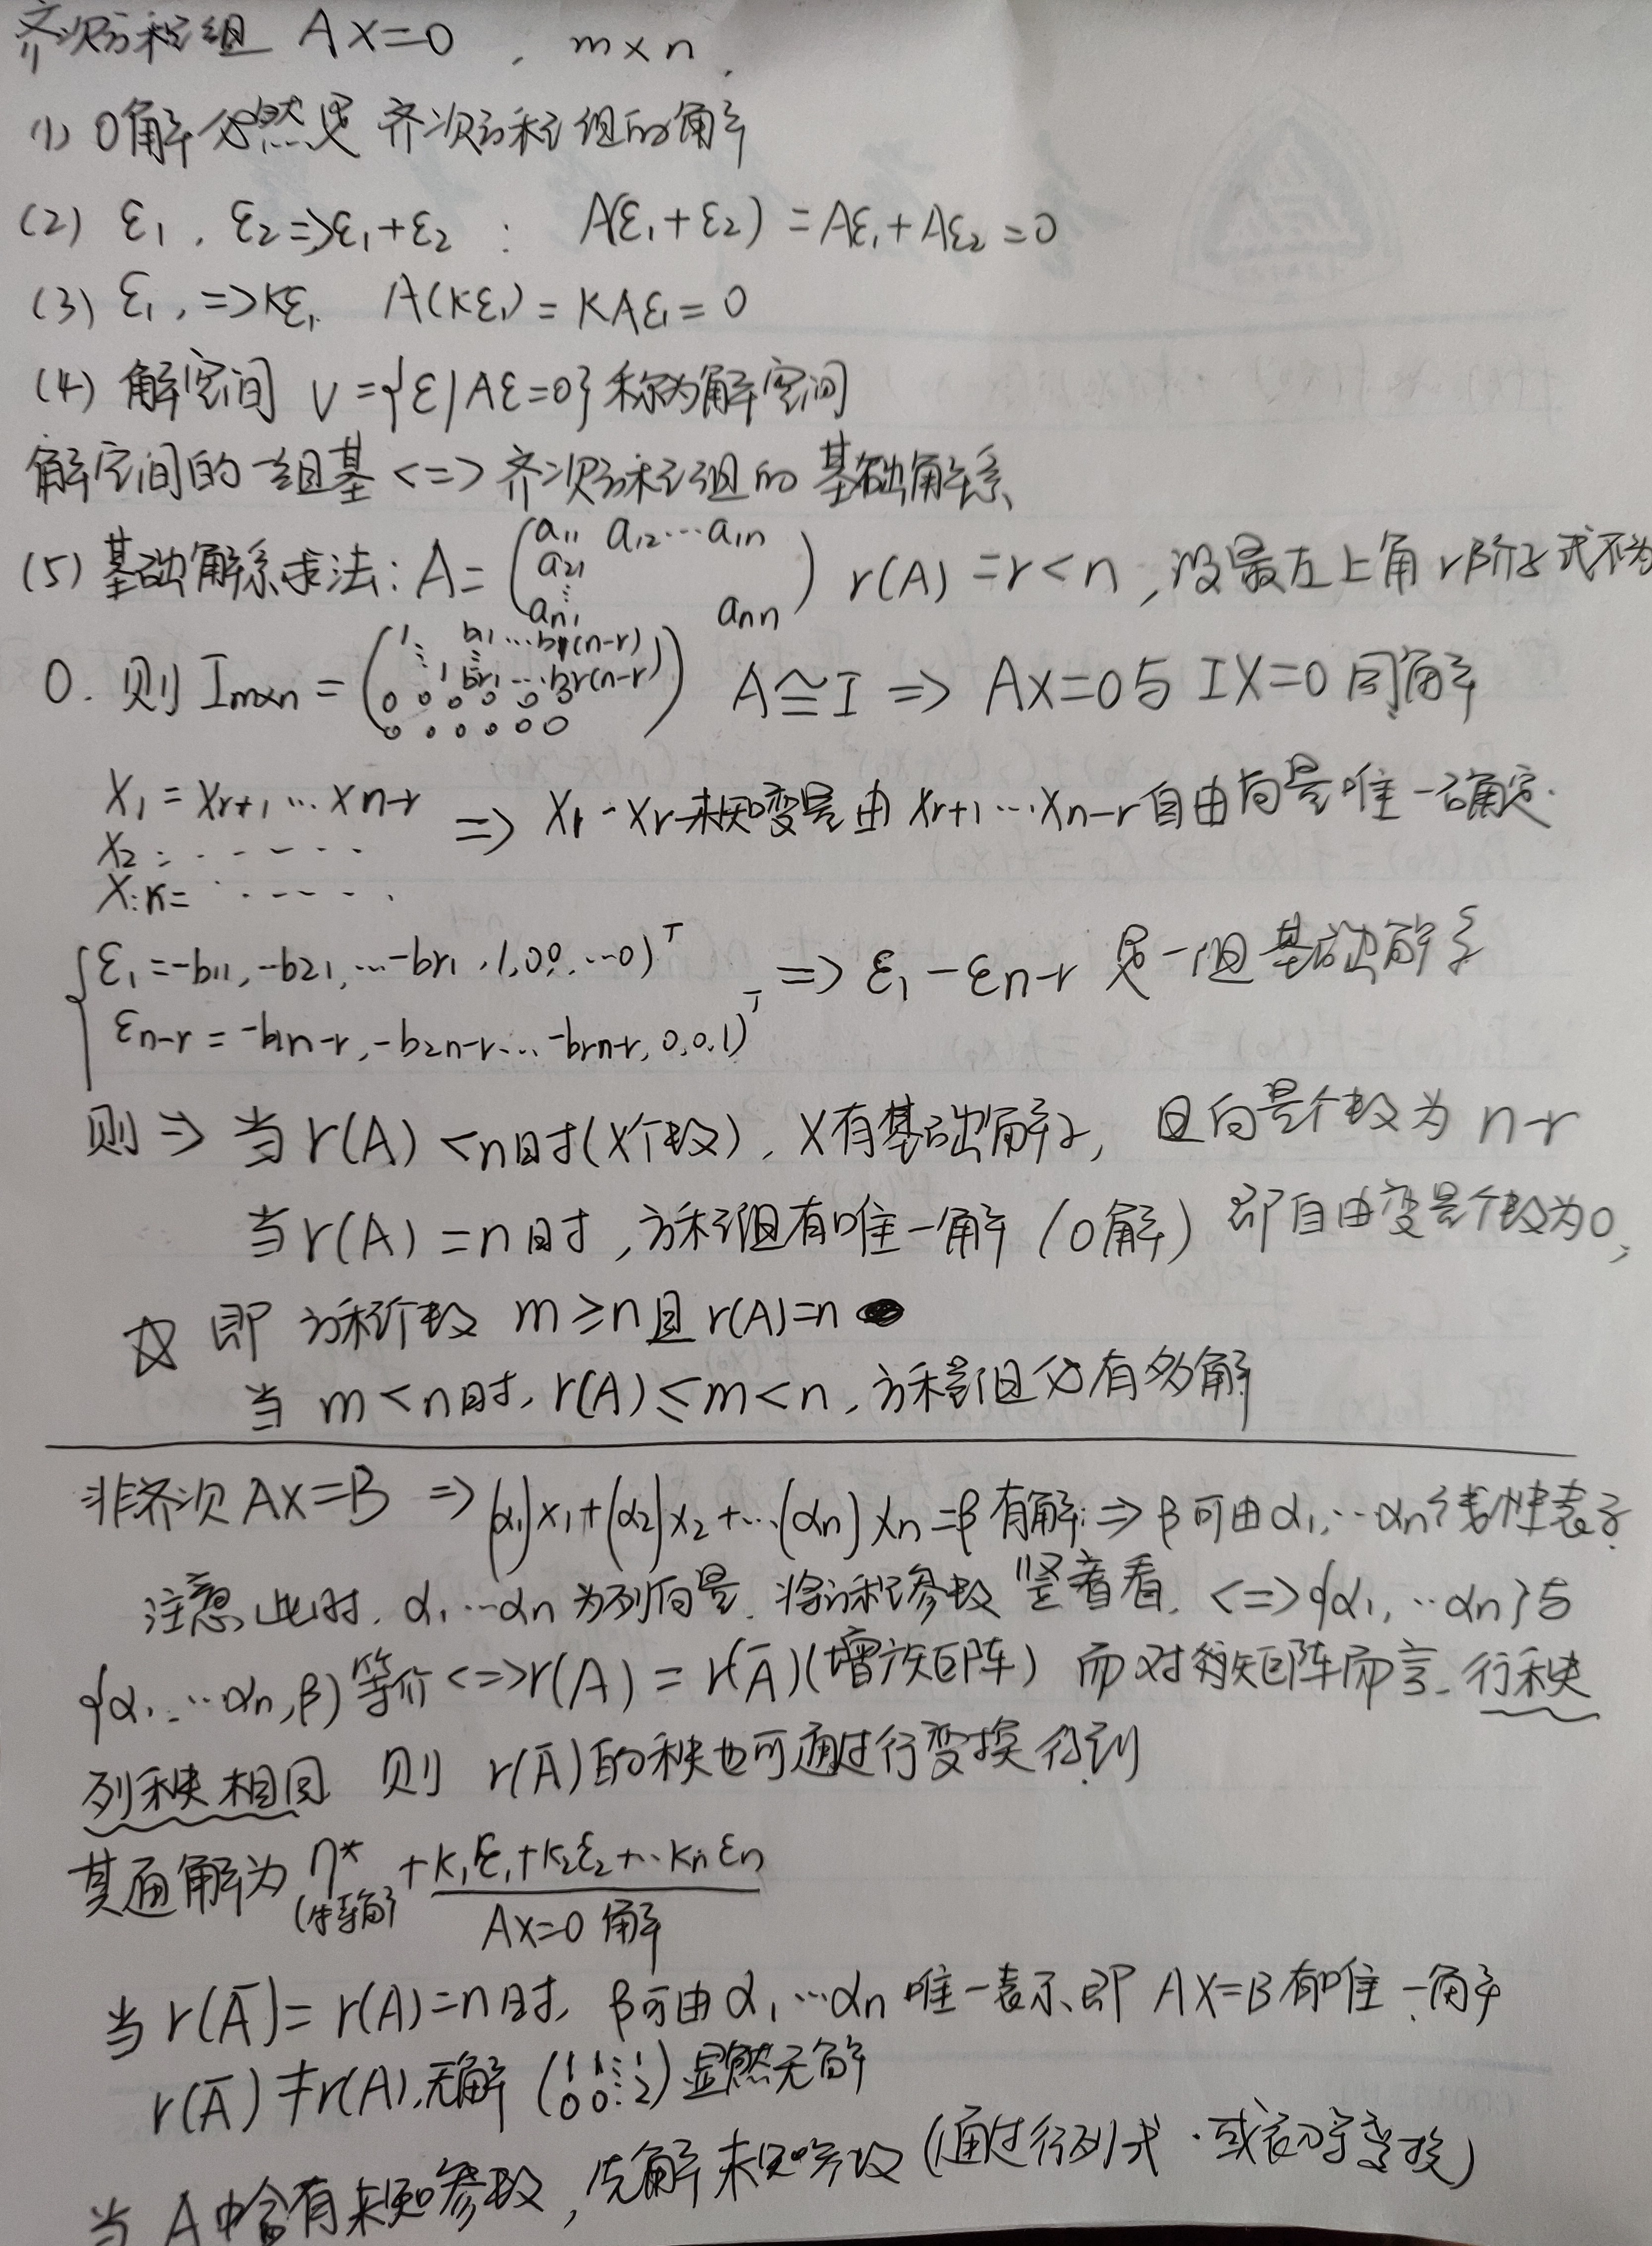 齐次方程组 AX=0 , m×n,
(1) 0解必然是 齐次方程组的解
(2) ε₁, ε₂=>ε₁+ε₂ : A(ε₁+ε₂) = Aε₁+Aε₂ = 0
(3) ε₁, =>Kε₁. A(Kε₁) = KAε₁ = 0
(4) 解空间 V={ε|Aε=0}称为解空间
解空间的一组基 <=> 齐次方程组的 基础解系
(5) 基础解系求法: A= (a₁₁ a₁₂…a₁n a₂₁ ⋮ an₁ ann) r(A) =r<n, 设最左上角r阶子式不为
0. 则 Im×n = (1 ⋱ b₁₁…b₁(n-r) 1 br₁…br(n-r) 0 0 0 0 0 0 0 0 0 0 0 0) A≌I => AX=0与 IX=0 同解
X₁ = Xr+1 … Xn-r => X₁-Xr未知变量由 Xr+1…Xn-r自由向量唯一确定.
X₂ = ......
X:r= ......
{ε₁ =-b₁₁, -b₂₁, …-br₁, 1,0,0, …0)ᵀ => ε₁-εn-r 是一组基础解系
εn-r = -b₁n-r, -b₂n-r… -brn-r, 0,0,1)ᵀ
则 => 当 r(A) <n时(X个数), X有基础解系, 且向量个数为 n-r
当r(A) =n时, 方程组有唯一解 (0解) 即自由变量个数为0,
☆ 即 方程个数 m≥n且 r(A)=n
当 m<n时, r(A)≤m<n, 方程组必有多解
非齐次AX=B => (α₁)x₁+(α₂)x₂+…(αn)xn=β有解: => β可由α₁,…αn线性表示.
注意此时, α₁…αn 为列向量. 将方程参数 竖着看. <=> {α₁, …αn}与
{α₁…αn,β}等价 <=>r(A) = r(A̅)(增广矩阵) 而对矩阵而言. 行秩
列秩相同 则 r(A̅)的秩也可通过行变换得到
其通解为 η* +k₁ε₁+k₂ε₂+…knεn
(特解) AX=0 解
当 r(A̅)= r(A)=n时, β可由α₁…αn 唯一表示、即 AX=B有唯一解
r(A̅) ≠r(A),无解 (1 1⋮1 0 0⋮2) 显然无解
当 A中含有未知参数, 先解未知参数 (通过行列式 . 或初等变换)